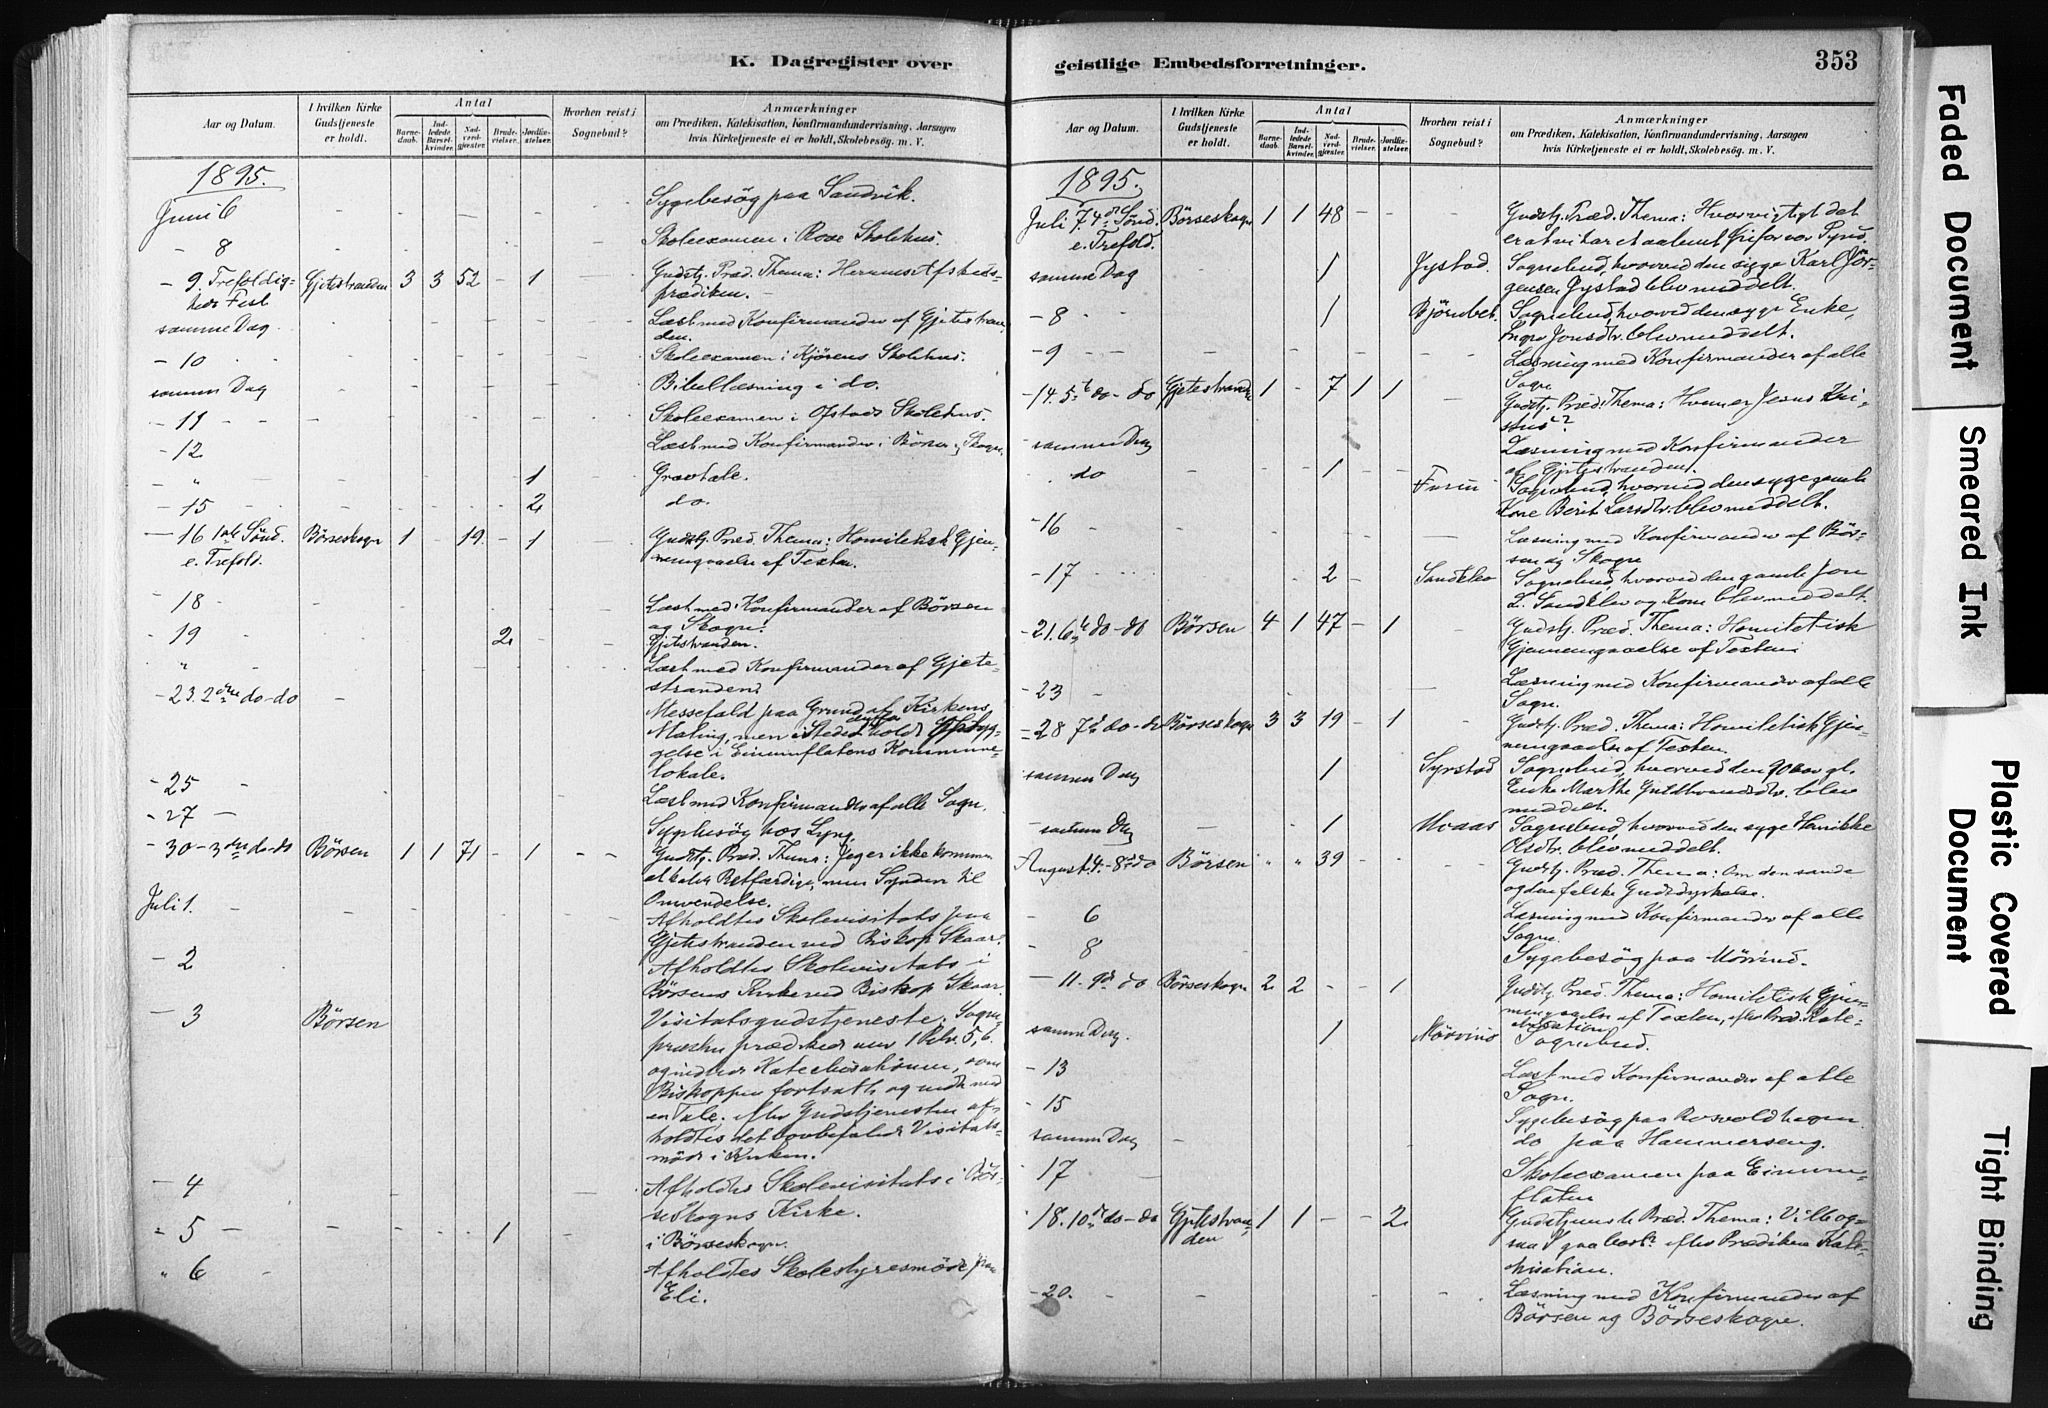 K. Dagregister over
Aar og Datum.
I hvilken Kirke Gudstjeneste er holdt.
Antal
Barnedaab.
Indledede Barselkvinder.
Nadverdgjæster.
Brudevielser.
Jordfæstelser.
Hvorhen reist i Sognebud?
Anmærkninger
om Prædiken, Katekisation, Konfirmandundervisning, Aarsagen
hvis Kirketjeneste ei er holdt, Skolebesøg. m. V.
1895.
Juni 6 - - - - Sygebesøg paa Sandvik.
- 8 - - - - Skoleexamen i Roxe Skolehus.
- 9. Trefoldig- Gjetestranden 3 3 52 - 1 Gudstj. Præd. Thema: Herrens Afskeds-
heds Fest prædiken.
samme Dag Læst med Konfirmander af Gjetestran-
den.
- 10 Skoleexamen i Kjørens Skolehus.
samme Dag Bibellæsning i do.
- 11 Skoleexamen i Ofstads Skolehus.
- 12 Læst med Konfirmander i Börsen, Skogn.
- " 1 Gravtale.
- 15 2 do.
- 16 1ste Sönd. Börseskogn 1 - 19 - 1 Gudstj. Præd. Thema: Homiletisk Gjen-
e. Trefold. nemgaaelse af Texten.
- 18 Læst med Konfirmander af Börsen
og Skogn.
- 19 2 Gjetestranden.
" Læst med Konfirmander af Gjete-
stranden.
- 23. 2den do - do - Messefald paa Grund af Kirkens
Maling, men i Stedet derfor holdt Opbyg-
gelse i Eimunflatens Kommune-
lokale.
- 25 Læst med Konfirmander af alle Sogn.
- 27 Sygebesøg hos Lyng.
- 30 - 3die do - do Börsen 1 1 71 - 1 Gudstj. Præd. Thema: Jeg er ikke kommen
at kalde Retfærdige, men Syndere til
Omvendelse.
Juli 1. Afholdtes Skolevisitats paa
Gjetestranden ved Biskop Skaar.
- 2 Afholdtes Skolevisitats i
Börsens Kirke ved Biskop Skaar.
- 3 Börsen Visitatsgudstjeneste. Sogne-
præsten prædiked over 1 Petr. 5, 6.
og indledede Katechisationen, som
Biskoppen fortsatte og endte med
en Tale. Efter Gudstjenesten af-
holdtes det lovbefalede Visitats-
möde i Kirken.
- 4 Afholdtes Skolevisitats i Bör-
seskogns Kirke.
- 5 1 i Börseskogn.
" 6 Afholdtes Skolestyresmöde paa
Eli.
geistlige Embedsforretninger.
353
Aar og Datum.
I hvilken Kirke Gudstjeneste er holdt.
Antal
Barnedaab.
Indledede Barselkvinder.
Nadverdgjæster.
Brudevielser.
Jordfæstelser.
Hvorhen reist i Sognebud?
Anmærkninger
om Prædiken, Katekisation, Konfirmandundervisning, Aarsagen
hvis Kirketjeneste ei er holdt, Skolebesøg. m. V.
1895.
Juli 7. 4de Sönd. Börseskogn 1 1 48 - - Gudstj. Præd. Thema: Hvor vigtigt det
e. Trefold. er at vi har et aabent Öie for vor Synd.
samme Dag 1 Gystad. Sognebud, hvorved den syge Karl Jör-
gensen Gystad blev meddelt.
- 8 1 Björnbet. Sognebud, hvorved den syge Enke,
Jonsdtr. blev meddelt.
- 9 Læsning med Konfirmander af alle
Sogn.
- 14. 5te do - do Gjetestranden 1 - 7 1 1 Gudstj. Præd. Thema: Hvem er Jesus Kri-
stus?
samme Dag Læsning med Konfirmander
af Gjetestranden.
do 1 Sognebud, hvorved den syge gamle
Kone Berit Larsdtr. blev meddelt.
- 16 Læsning med Konfirmander af Bör-
sen og Skogn
- 17 2 Sandklev Sognebud, hvorved den gamle Jon
L. Sandklev og Kone blev meddelt.
- 21. 6te do - do Börsen 4 1 47 - 1 Gudstj. Præd. Thema: Homiletisk
Gjennemgaaelse af Texten.
- 23 Læsning med Konfirmander af alle
Sogn.
- 28 7de do - do Börseskogn 3 3 19 - 1 Gudstj. Præd. Thema: Homiletisk Gjen-
nemgaaelse af Texten.
samme Dag 1 Syrstad Sognebud, hvorved den 90 Aar gl.
Enke Marthe Guldbrandsdtr. blev
meddelt.
samme Dag 1 Moaas Sognebud, hvorved den syge Henrikke
Olsdtr. blev meddelt.
August 4. - 8de do Börsen " " 39 - - Gudstj. Præd. Thema: Om den sande
og den falske Gudsdyrkelse.
- 6 Læsning med Konfirmander af alle
Sogn.
- 8 Sygebesøg paa
- 11. 9de do Börseskogn 2 2 - - 1 Gudstj. Præd. Thema: Homiletisk Gjen-
nemgaaelse af Texten, efter Præd. Kate-
kisation.
samme Dag. 1 Sognebud.
- 13 Læst med Konfirmander af alle
Sogn.
- 15 Sygebesøg paa Rosvoldhagen
samme Dag do paa Hammerseng.
- 17 Skoleexamen paa Eimun-
flaten
- 18. 10de do - do Gjetestran- 1 1 - - 2 Gudstjeneste Præd. Thema: Vil I og-
den saa gaa bort? efter Prædiken Kate-
kisation.
- 20. Læsning med Konfirmander af
Börsen og Börseskogn.
Faded Document
Smeared Ink
Plastic Covered Document
Tight Binding